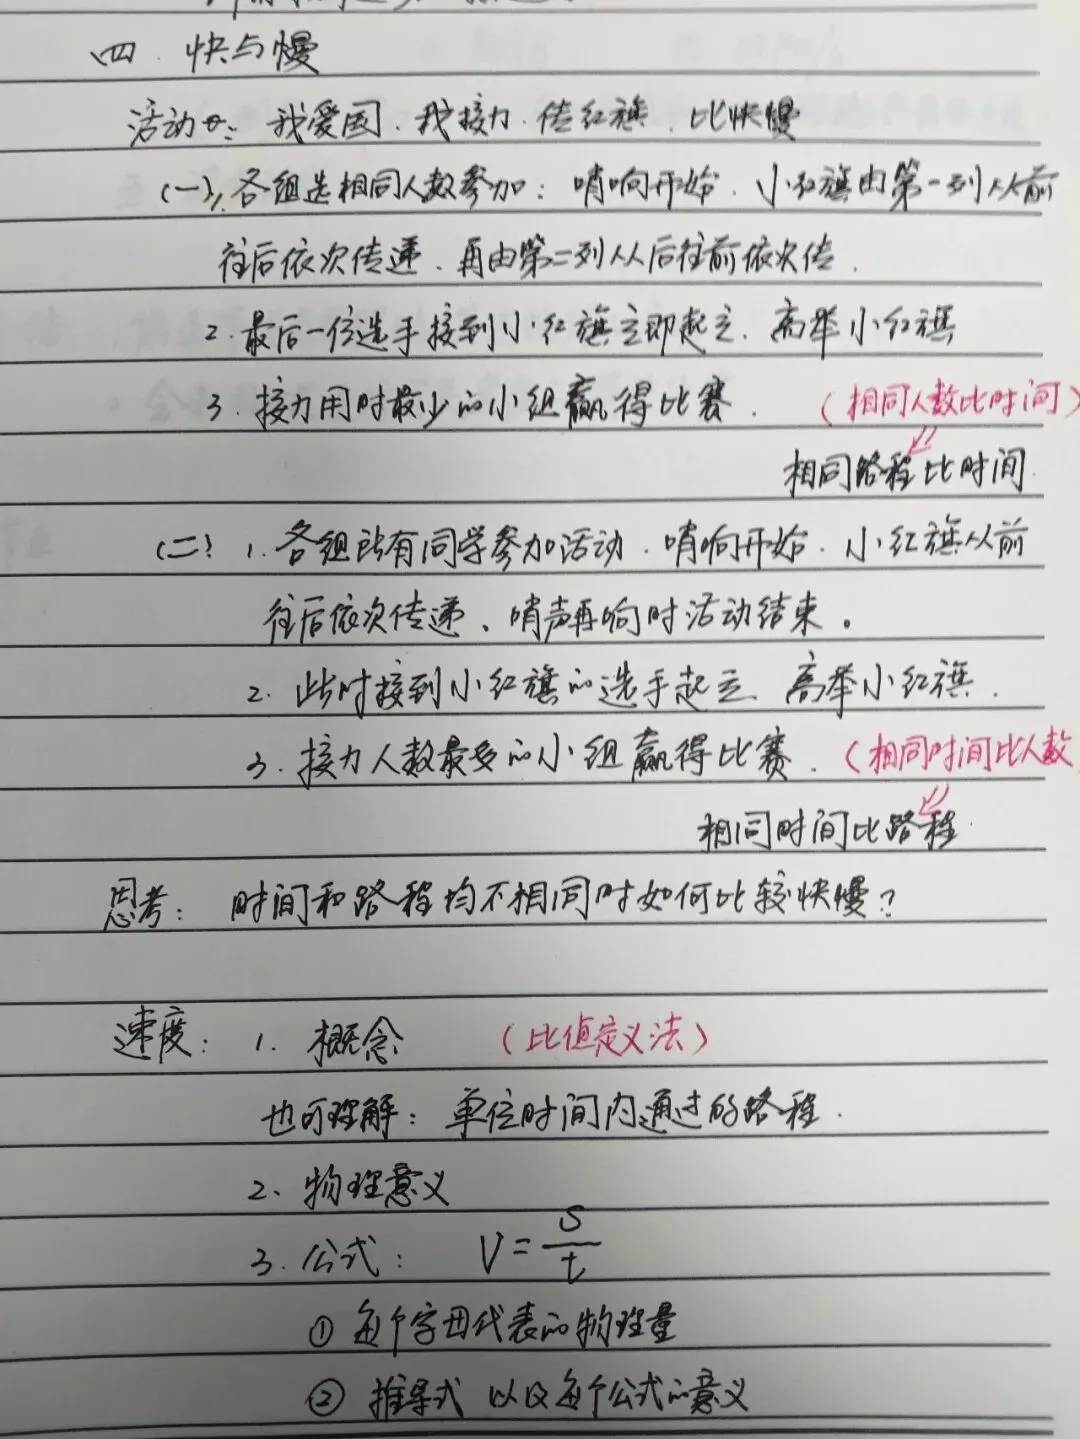 四. 快与慢
活动四: 我爱国、我接力、传红旗、比快慢
(一)1.各组选相同人数参加: 哨响开始、小红旗由第一列从前
往后依次传递、再由第二列从后往前依次传.
2.最后一位选手接到小红旗立即起立、高举小红旗
3.接力用时最少的小组赢得比赛. (相同人数比时间)
相同路程比时间
(二) 1.各组所有同学参加活动、哨响开始、小红旗从前
往后依次传递、哨声再响时活动结束。
2. 此时接到小红旗的选手起立、高举小红旗.
3. 接力人数最多的小组赢得比赛. (相同时间比人数
相同时间比路程
思考: 时间和路程均不相同时如何比较快慢?
速度: 1. 概念 (比值定义法)
也可理解: 单位时间内通过的路程.
2、物理意义
3. 公式: V=s/t
① 每个字母代表的物理量
② 推导式 以及每个公式的意义